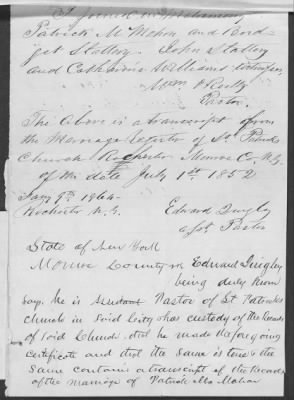 I joined in Matrimony
Patrick McMahon and Brid-
get Slattery. John Slattery
and Catharine Williams witnesses
Wm O'Reilly
Pastor.
The above is a transcript from
the Marriage Register of St Patrick
Church Rochester Monroe Co, N.Y.
of the date July 1st 1852
Jany 9th 1864
Rochester N.Y.
Edward Quigley
asst Pastor
State of New York
Monroe County ss Edward Quigley
being duly sworn
says he is assistant Pastor of St Patricks
church in said City & has custody of the Records
of said Church that he made the foregoing
certificate and that the same is true & the
same contains a transcript of the Records
of the marriage of Patrick McMahon